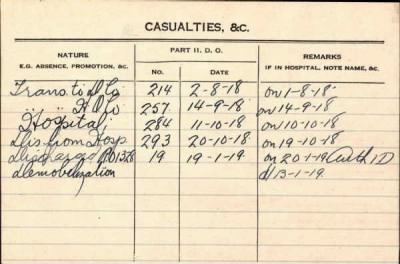 CASUALTIES, &C.
NATURE
E.G. ABSENCE, PROMOTION, &C.
PART II. D. O.
NO.
DATE
REMARKS
IF IN HOSPITAL, NOTE NAME, &C.
Trans. to D Co 214 2-8-18 on 1-8-18
" " H Q Co 257 14-9-18 on 14-9-18
Hospital 284 11-10-18 on 10-10-18
Dis from Hosp 293 20-10-18 on 19-10-18
Discharged RO1328 19 19-1-19 on 20-1-19 Auth 1D
Demobilization d/13-1-19